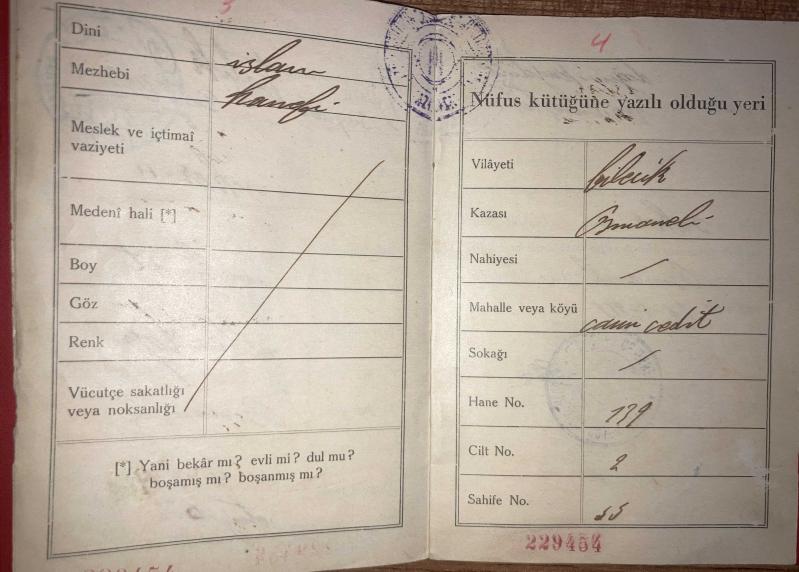 3
Dini islam
Mezhebi hanefi
Meslek ve içtimaî
vaziyeti
Medenî hali [*]
Boy
Göz
Renk
Vücutçe sakatlığı
veya noksanlığı
[*] Yani bekâr mı? evli mi? dul mu?
boşamış mı? boşanmış mı?
4
Nüfus kütüğüne yazılı olduğu yeri
Vilâyeti bilecik
Kazası Osmaneli
Nahiyesi /
Mahalle veya köyü cami cedit
Sokağı /
Hane No. 139
Cilt No. 2
Sahife No. 55
229454